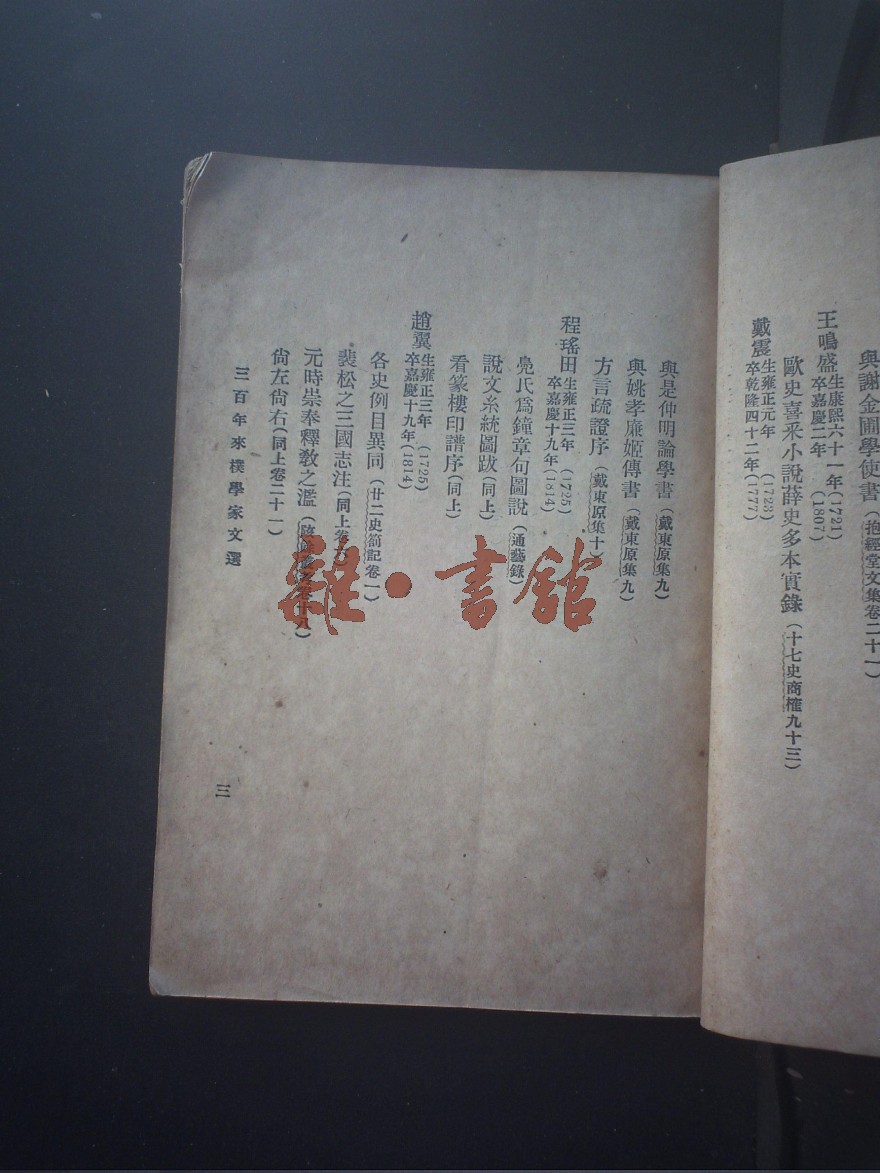 與謝金圃學使書（抱經堂文集卷二十一）
王鳴盛生康熙六十一年(1721)
卒嘉慶二年 (1807)
歐史喜釆小說薛史多本實錄（十七史商榷九十三）
戴震生雍正元年 (1723)
卒乾隆四十二年(1777)
與是仲明論學書（戴東原集九）
與姚孝廉姬傳書（戴東原集九）
方言疏證序（戴東原集十）
程瑤田生雍正三年 (1725)
卒嘉慶十九年(1814)
鳧氏爲鐘章句圖說（通藝錄）
說文系統圖跋（同上）
看篆樓印譜序（同上）
趙翼生雍正三年 (1725)
卒嘉慶十九年(1814)
各史例目異同（廿二史箚記卷一）
裴松之三國志注（同上卷六）
元時崇奉釋敎之濫
尙左尙右（同上卷二十一）
三百年來樸學家文選
三
雜·書館